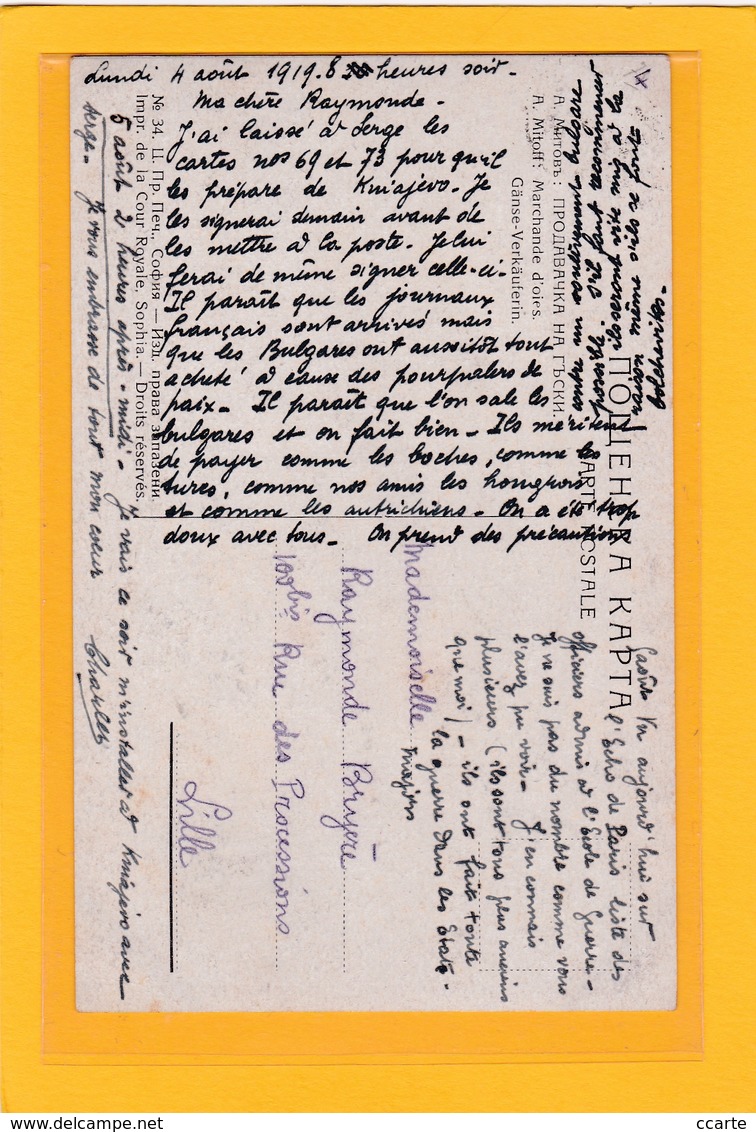 Lundi 4 août 1919. 8 heures soir.
Ma chère Raymonde.
J'ai laissé à Serge les
cartes nos 69 et 73 pour qu'il
les prépare de Kniajevo. Je
les signerai demain avant de
les mettre à la poste. Je lui
ferai de même signer celle-ci.
Il paraît que les journaux
français sont arrivés mais
que les Bulgares ont aussitôt tout
acheté à cause des pourpalers de
paix. Il paraît que l'on sale les
bulgares et on fait bien. Ils méritent
de payer comme les boches, comme les
turcs, comme nos amis les hongrois
et comme les autrichiens. On a été trop
doux avec tous. On prend des précautions
5 août 2 heures après-midi. Je vais ce soir m'installer à Kniajevo avec
Serge. Je vous embrasse de tout mon coeur Charles
№ 34. Ц. Пр. Печ., София — Изд. права запазени.
Impr. de la Cour Royale, Sophia. — Droits réservés.
А. Митовъ: ПРОДАВАЧКА НА ГЪСКИ.
A. Mitoff: Marchande d'oies.
Gänse-Verkäuferin.
ПОЩЕНСКА КАРТА
CARTE POSTALE
Mademoiselle
Raymonde Bruyère
100bis Rue des Processions
Lille
Vu aujourd'hui sur
l'Echo de Paris liste des
officiers admis à l'Ecole de Guerre.
Je ne suis pas du nombre comme vous
l'avez pu voir. J'en connais
plusieurs (ils sont tous plus anciens
que moi) - ils ont fait toute
la guerre dans les Etats-
majors